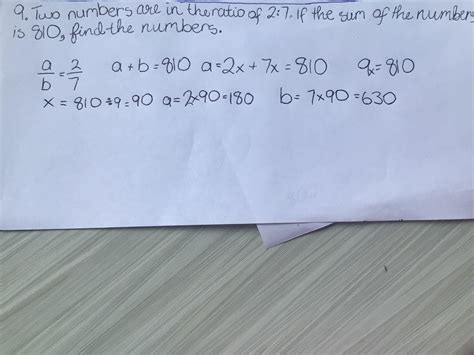 9. Two numbers are in the ratio of 2:7. If the sum of the numbers
is 810, find the numbers.
a/b = 2/7 a + b = 810 a = 2x + 7x = 810 9x = 810
x = 810 ÷ 9 = 90 a = 2x90 = 180 b = 7x90 = 630